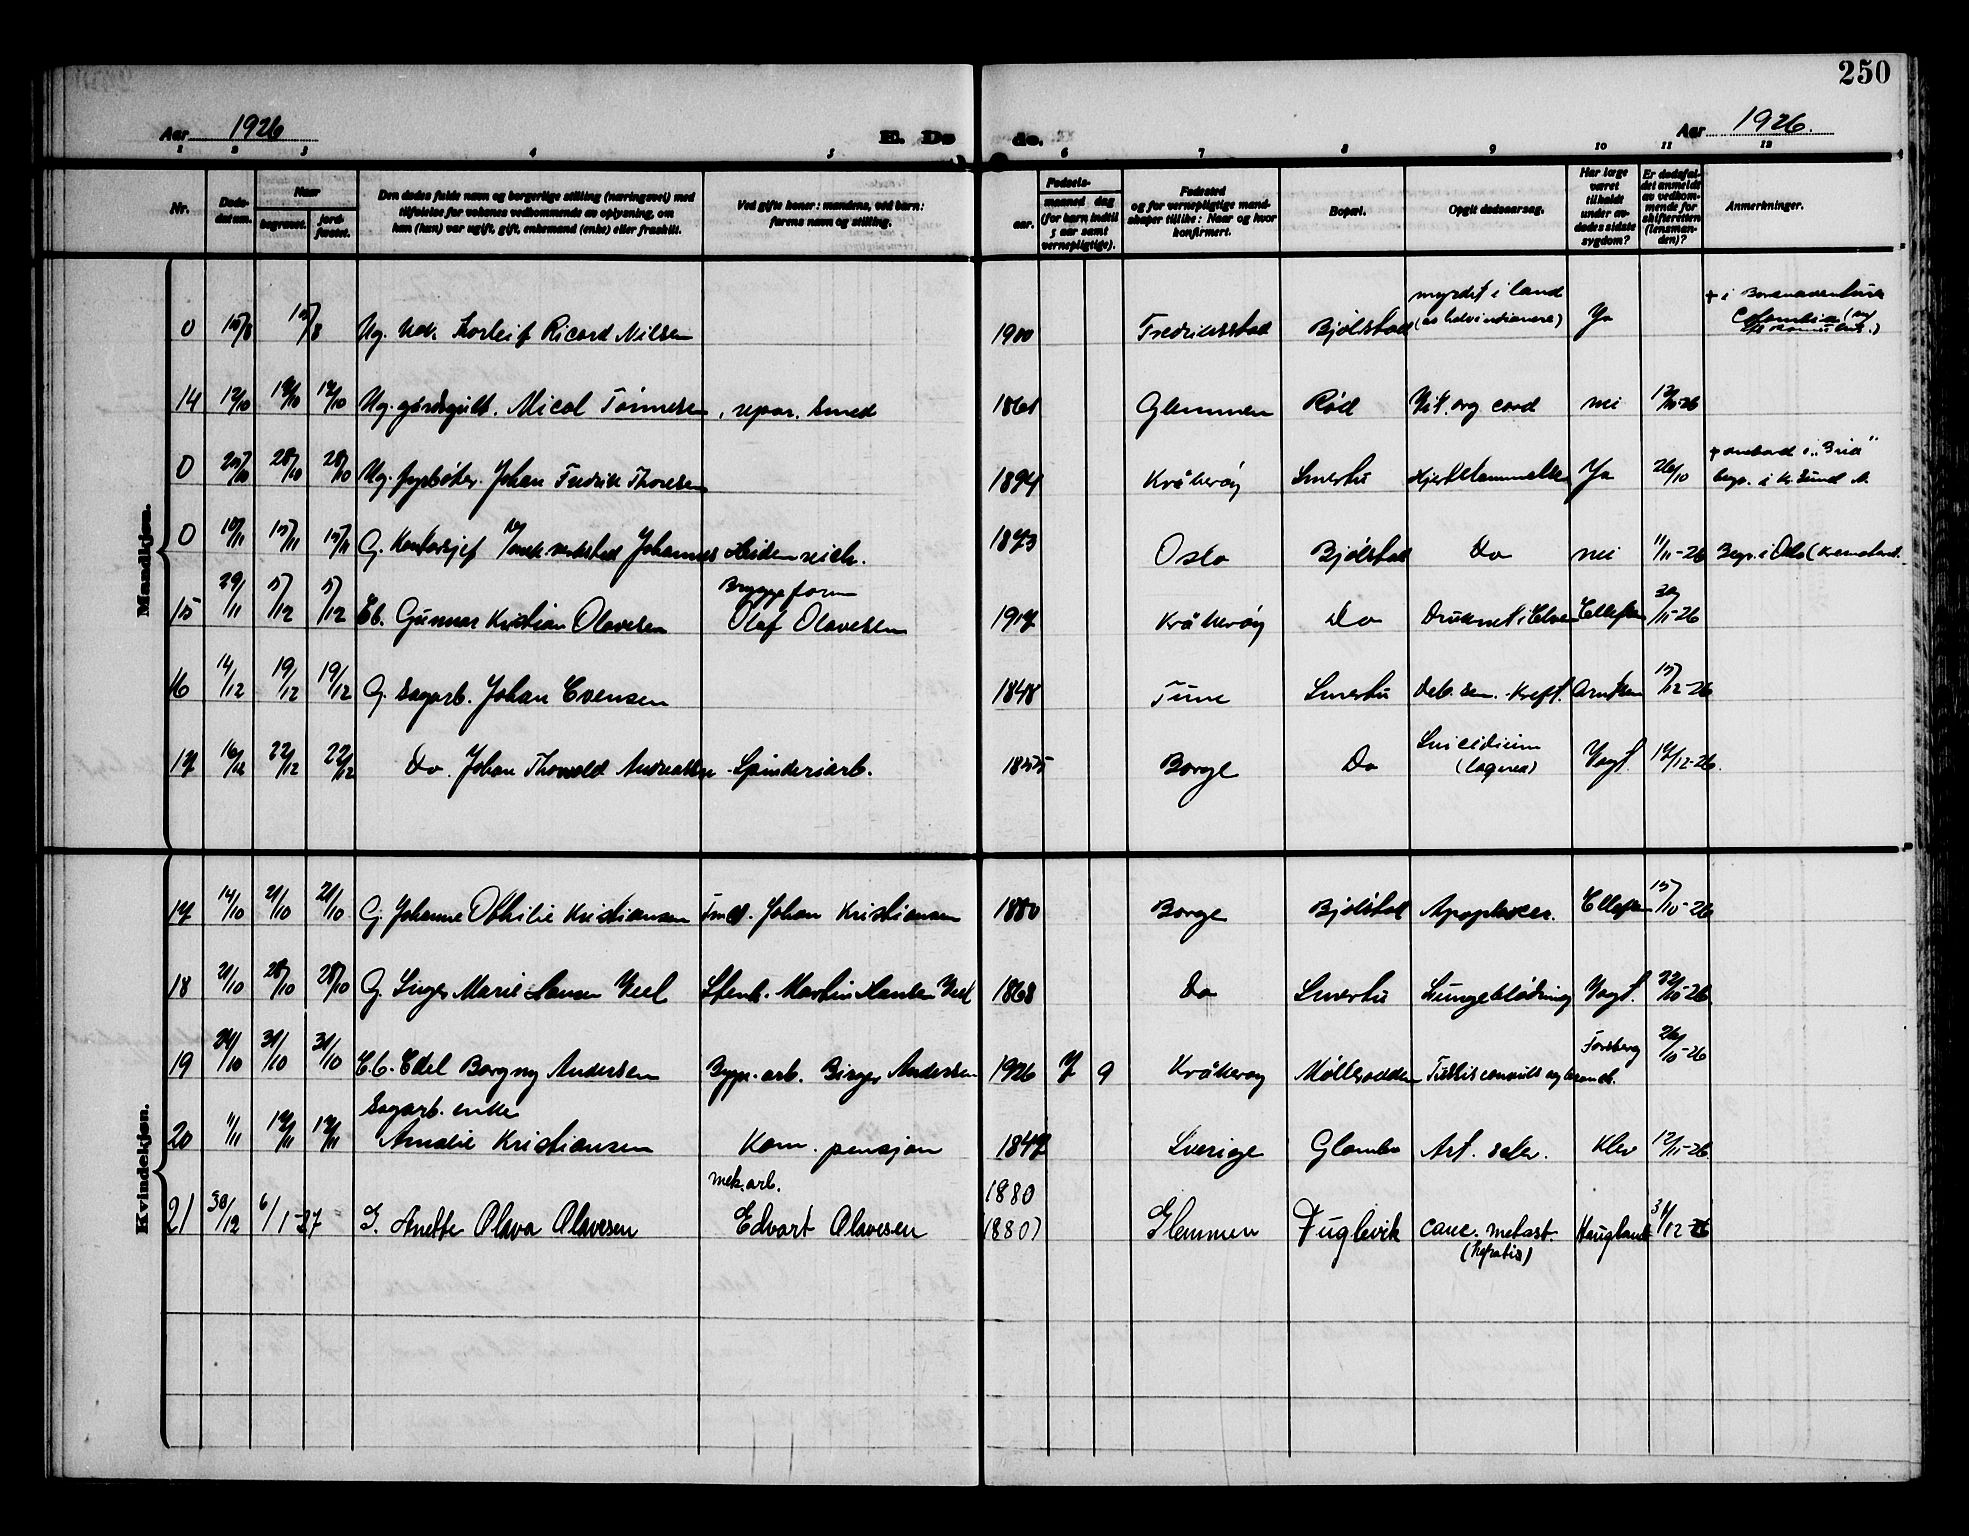 250
Aar 1926 E. Dø de. Aar 1926.
1 2 3 4 5 6 7 8 9 10 11 12
Nr. Døds-datum. Naar begravet. jord-fæstet. Den dødes fulde navn og borgerlige stilling (næringsvei) med tilføielse for voksnes vedkommende av oplysning, om han (hun) var ugift, gift, enkemand (enke) eller fraskilt. Ved gifte koner: mandens, ved barn: farens navn og stilling. Fødsels- aar. maaned dag (for barn indtil 5 aar samt vernepligtige). Fødested og for vernepligtige mandskaper tillike: Naar og hvor konfirmert. Bopæl. Opgit dødsaarsag. Har læge været tilkaldt under avdødes sidste sygdom? Er dødsfaldet anmeldt av vedkommende for skifteretten (lensmanden)? Anmerkninger.
Mandkjøn.
0 15/8 15/8 Ug. Torleif Ricard Nilsen 1900 Fredriksstad Bjølstad myrdet i land (av halvindianere) Ja + i Colombia
14 12/10 Ug. gårdsgutt. Mical Tønnesen, repar. smed 1861 Glemmen Rød Vit. org cord nei 26
0 28/10 28/10 Ug. fyrbøter. Johan Fredrik Thoresen 1894 Kråkerøy Smertu Hjertelammelse Ja 26/10 + ombord i "Bria" begr. i Kr.sund N.
0 10/11 15/11 15/11 G. Kontorsjef mek verksted Johannes Heidenreich. 1873 Oslo Bjølstad Do nei 11/11-26 Begr. i Oslo
15 29/11 5/12 5/12 Eb. Gunnar Kristian Olavesen Bryggeform Olaf Olavesen 1917 Kråkerøy Do Druknet i Elven Ellefsen 30/11-26
16 14/12 19/12 19/12 G. Sagarb. Johan Evensen 1848 Tune Smertu Deb. sen. Kreft. Arntzen 15/12-26
17 16/12 22/12 22/12 Do. Johan Thorvald Andreassen Spinderiarb. 1855 Borge Do Suicidium (laqueo) Vogt. 17/12-26.
Kvindekjøn.
17 14/10 21/10 21/10 G. Johanne Othilie Kristiansen Johan Kristiansen 1880 Borge Bjølstad Ellefsen 15/10-26
18 21/10 28/10 28/10 G. Inger Marie Hansen Martin Hansen 1868 Do Smertu Lungeblødning Vogt. 22/10-26
19 24/10 31/10 31/10 E.b. Edel Borgny Andersen Bygn. arb. Birger Andersen 1926 7 9 Kråkerøy Møllerodden Tussis convuls og bronch. Forsberg 26/10-26
20 11/11 17/11 17/11 Sagarb. enke Amalie Kristiansen Kom. pensjon 1847 Sverige Glombo Art. scler. Klev 12/11-26
21 30/12 6/1-27 G. Anette Olava Olavesen mek. arb. Edvart Olavesen 1880 (1880) Glemmen Fuglevik canc. metast. (hepatis) Haugland 31/12-26